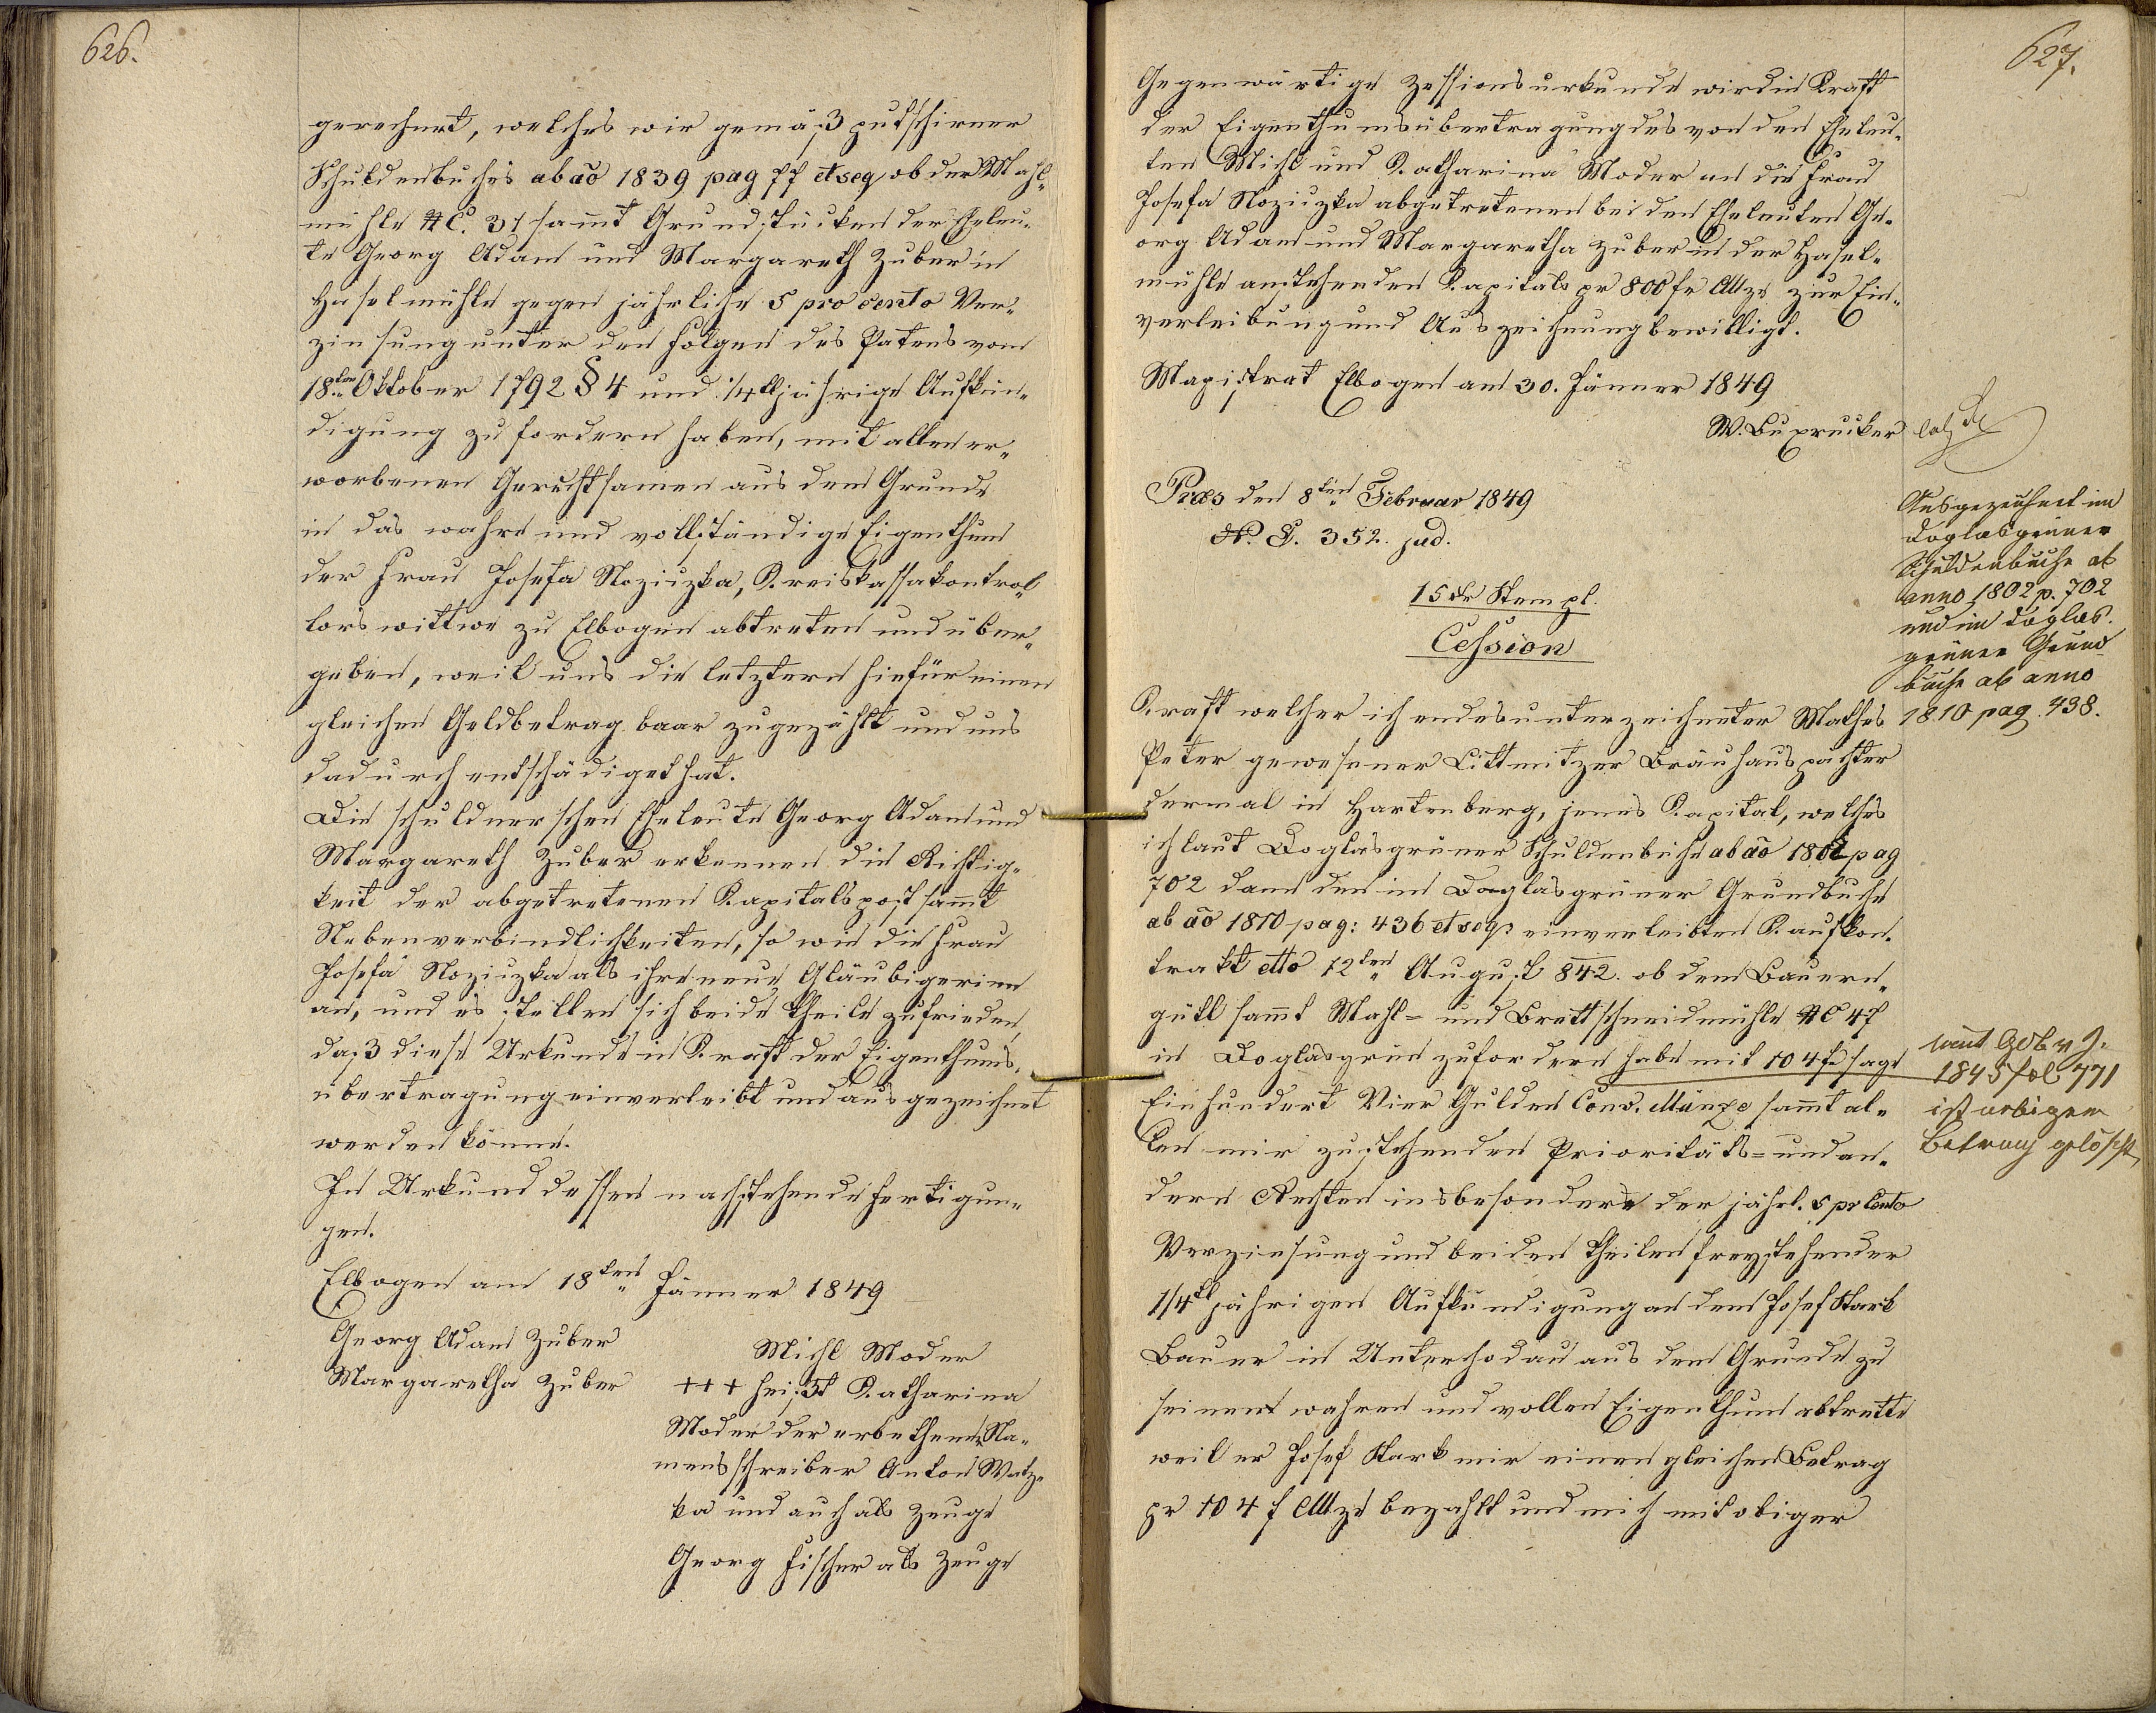 626.
gerechnet, welches wir gemäß putschirner
Schuldenbuches ab aõ 1839 pag 77 et seq ob der Mahl-
mühle NC. 31 sam̄t Grundstücken der Eheleu-
te Georg Adam und Margareth Zuber in
Haselmühle gegen jährliche 5 pro cento Ver-
zinsung unter den Folgen des Patens vom
18ten Oktober 1792 § 4 und 1/4lljährige Aufkün-
digung zu fordern haben, mit allen er-
worbenen Gerechtsamen aus dem Grunde
in das wahre und vollständige Eigenthum
der Frau Josefa Noziczka, Kreiskassakontrol-
lorswittwe zu Elbogen abtreten und über-
geben, weil uns die letztere hiefür einen
gleichen Geldbetrag baar zugezählt und uns
dadurch entschädiget hat.
Die schuldnerschen Eheleute Georg Adam und
Margareth Zuber erkennen die Richtig-
keit der abgetretenen Kapitalspost sam̄t
Nebenverbindlichkeiten, so wie die Frau
Josefa Noziczka als ihre neue Gläubigerinn
an, und es stellen sich beide Theile zufrieden,
daß diese Urkunde in Kraft der Eigenthums-
übertragung einverleibt und ausgezeichnet
werden könne.
In Urkund dessen nachstehende Fertigun-
gen.
Elbogen am 18ten Jänner 1849
Georg Adam Zuber
Margaretha Zuber
Michl Moder
+++ heißt Katharina
Moder der erbethene Na-
mensschreiber Anton Watz-
ka und auch als Zeuge
Georg Fischer als Zeuge
627.
Gegenwärtige Zessionsurkunde wird in Kraft
der Eigenthumsübertragung des von den Eheleu-
ten Michl und Katharina Moder an die Frau
Josefa Noziczka abgetretenen bei den Eheleuten Ge-
org Adam und Margaretha Zuber in der Hasel-
mühle anstehenden Kapitals pr 800 fr CMze zur Ein-
verleibung und Auszeichnung bewilligt.
Magistrat Elbogen am 30. Jänner 1849
W. Buxprucker
Præs den 8ten Februar 1849
N. E. 352. jud.
15 xr Stempl.
Cession
Kraft welcher ich endesunterzeichneter Mathes
Peter gewesener Littmitzer Bräuhauspächter
dermal in Hartenberg, jenes Kapital, welches
ich laut Doglasgrüner Schuldenbuche ab aõ 1802 pag
702 dann den im Doglasgrüner Grundbuche
ab aõ 1810 pag: 436 et seq: einverleibten Kaufkon-
trakt dtto 12ten August 842. ob dem Bauern-
gütl sam̄t Mahl- und Brettschneidmühle NC 47
in Doglasgrün zufordern habe mit 104 f sage
Einhundert Vier Gulden Conv. Münze sam̄t al-
len mir zustehenden Prioritäts- und an-
dern Rechten insbesondere der jährl. 5 pr Cento
Verzinsung und beiden Theilen freystehender
1/4tl jährigen Aufkündigung an dem Josef Stark
Bauer in Unterchodau aus dem Grunde zu
seinem wahren und vollen Eigenthum abtrette
weil er Josef Stark mir einen gleichen Betrag
pr 104 f CMze bezahlt und mich mit obiger
Ausgezeichnet im
Doglasgrüner
Schuldenbuche ab
anno 1802 p. 702
und im Doglas-
grüner Grund
buche ab anno
1810 pag. 438.
1845 fol 771
ist obiger
Betrag gelöscht